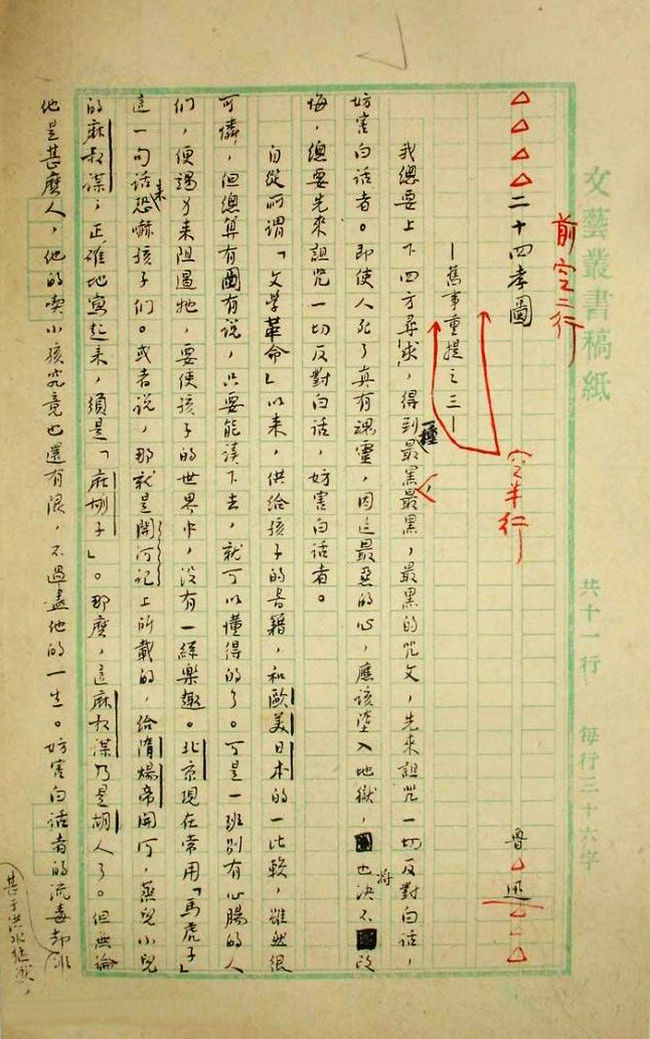 文藝叢書稿紙
共十一行
每行三十六字
前空二行
二十四孝圖
魯迅
空半行
—舊事重提之三—
我總要上下四方尋求，得到一種最黑最黑，最黑的咒文，先來詛咒一切反對白話，
妨害白話者。即使人死了真有魂靈，因這最惡的心，應該墮入地獄，也將決不改
悔，總要先來詛咒一切反對白話，妨害白話者。
自從所謂「文學革命」以來，供給孩子的書籍，和歐美日本的一比較，雖然很
可憐，但總算有圖有說，只要能讀下去，就可以懂得的了。可是一班別有心腸的人
們，便竭力來阻遏牠，要使孩子的世界中，沒有一絲樂趣。北京現在常用「馬虎子」
這一句話來恐嚇孩子們。或者說，那就是開河記上所載的，給隋煬帝開河，蒸死小兒
的麻叔謀；正確地寫起來，須是「麻胡子」。那麼，這麻叔謀乃是胡人了。但無論
他是甚麼人，他的喫小孩究竟也還有限，不過盡他的一生。妨害白話者的流毒却
甚于洪水猛獸，